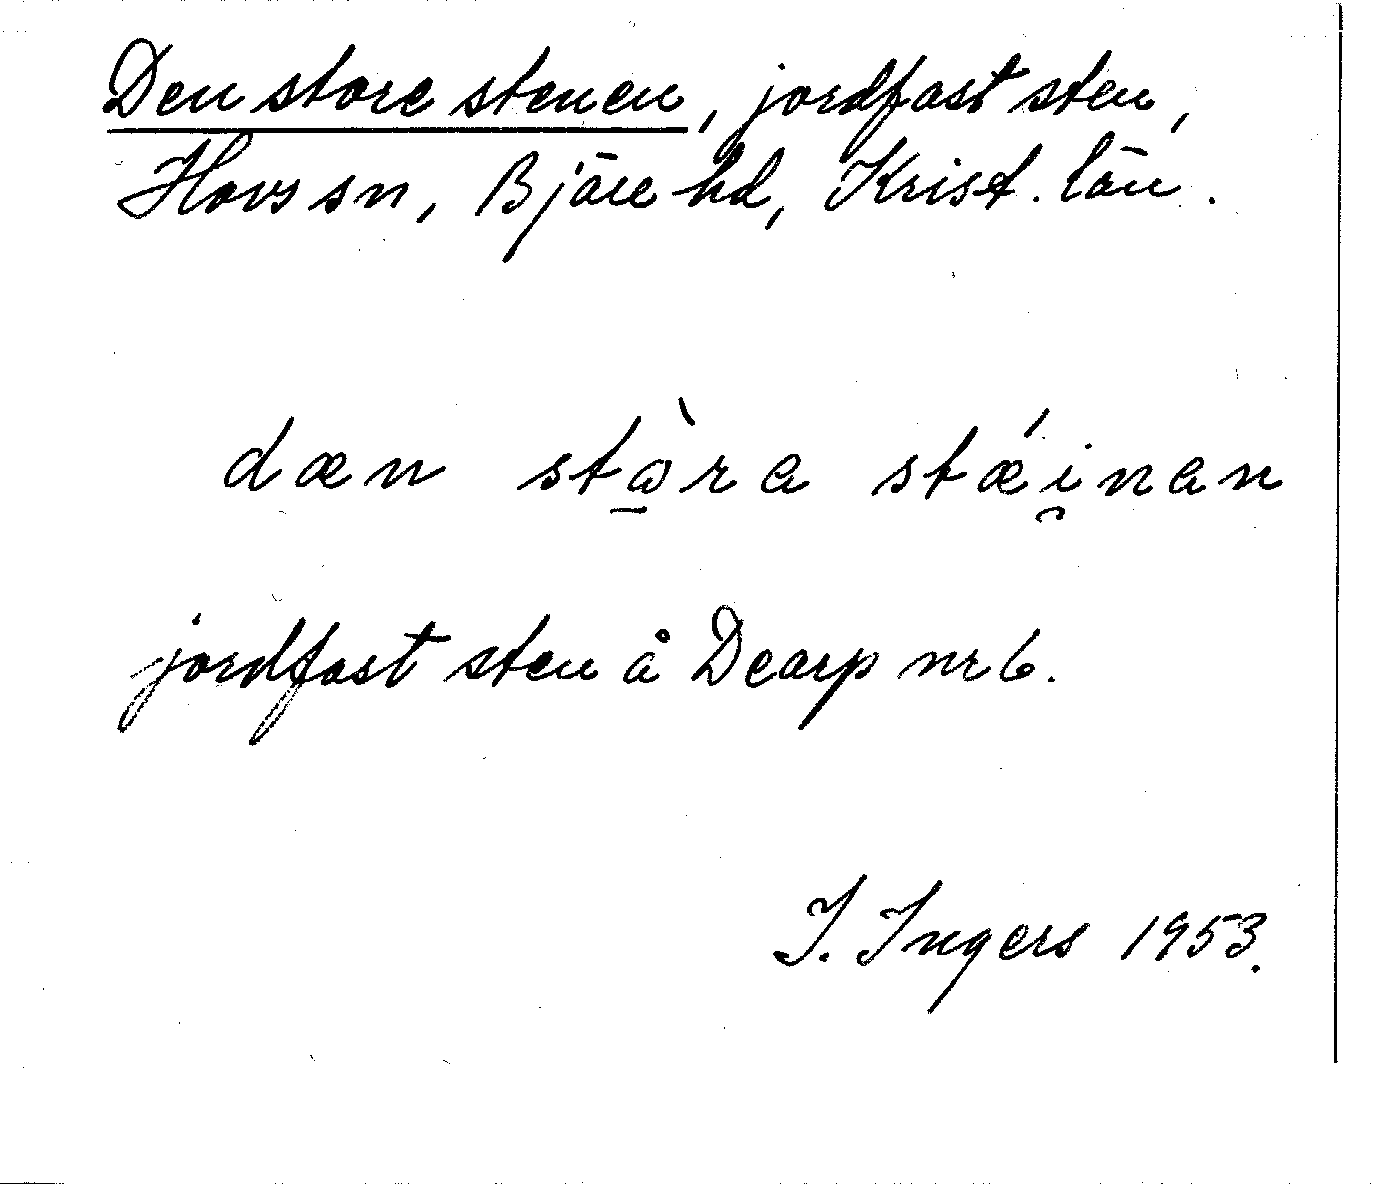 Den store stenen, jordfast sten,
Hovs sn, Bjäre hd, Krist. län.
dæn stὼ̱ra stǽi̯nan
jordfast sten å Dearp nr 6.
I. Ingers 1953.